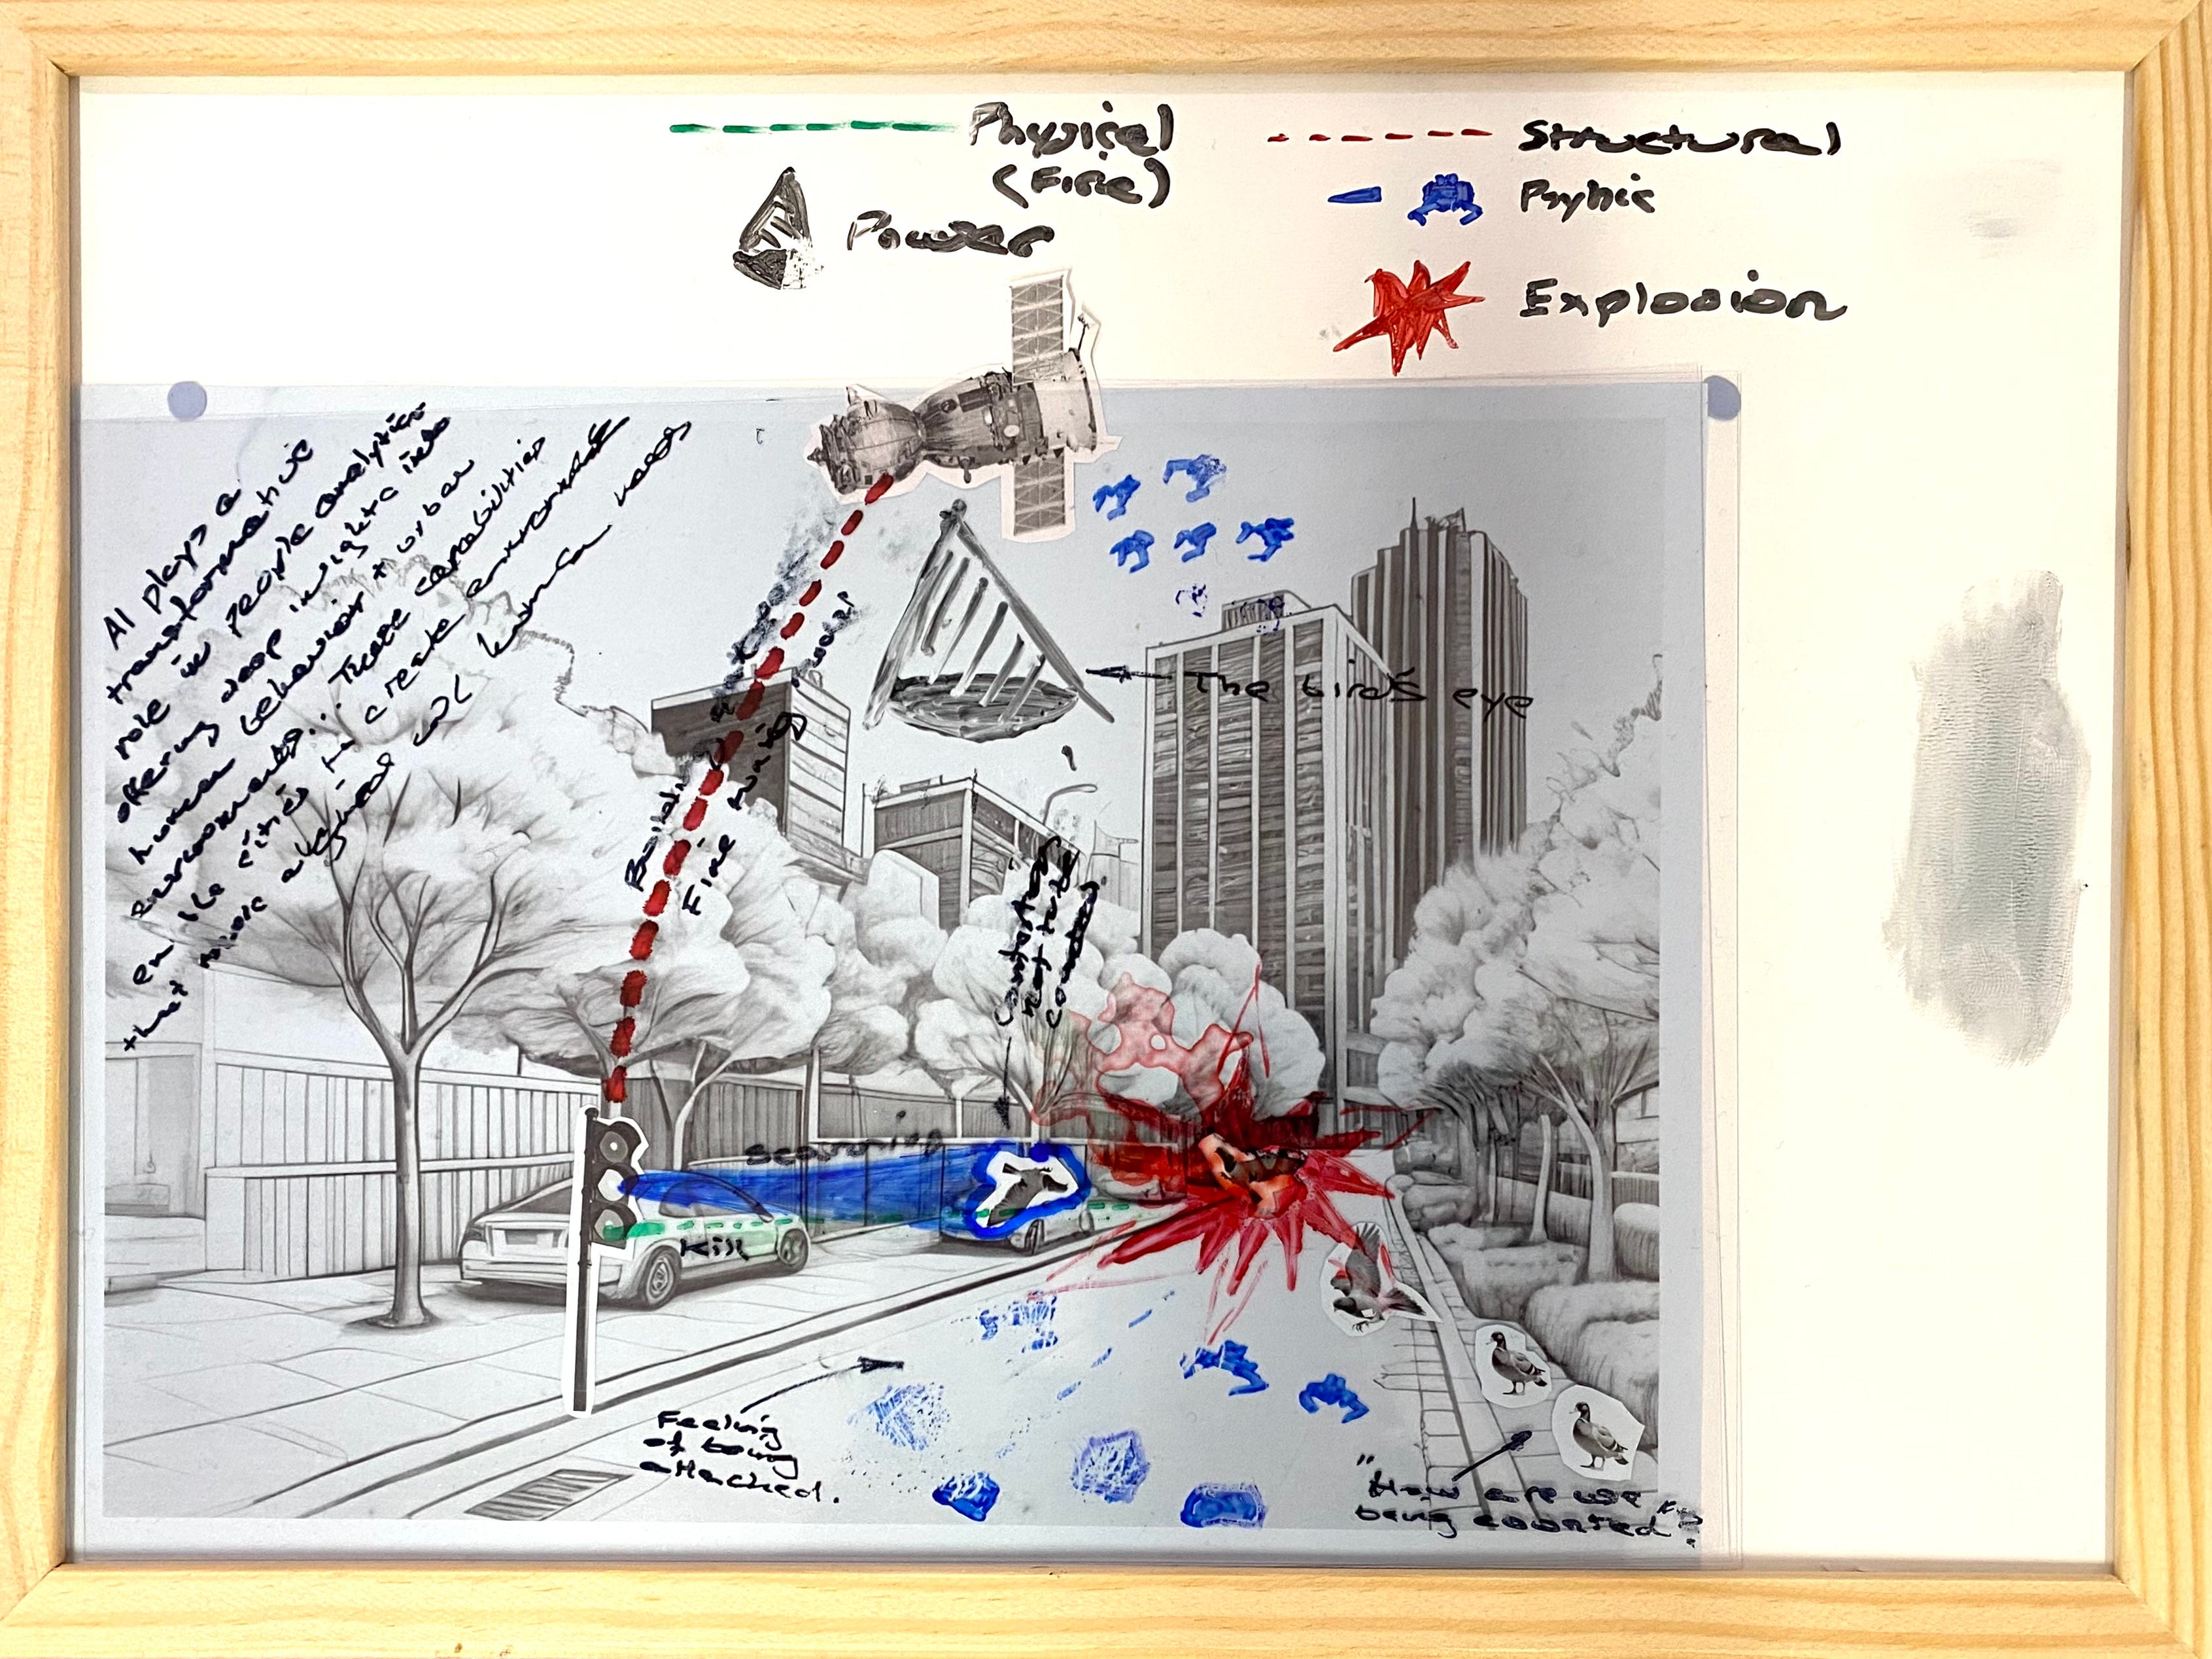 Physical
(Fire)
Power
Structural
Psyhic
Explosion
AI plays a
transformative
role in people analytics
offering deep insights into
human behavior + urban
environments... These capabilities
enable cities to create environments
that more aligned with human needs
Building
Fine tuning model
The bird's eye
not to be
counted.
Scanning
Kill
Feeling
of being
attacked.
"How are we
being counted"?